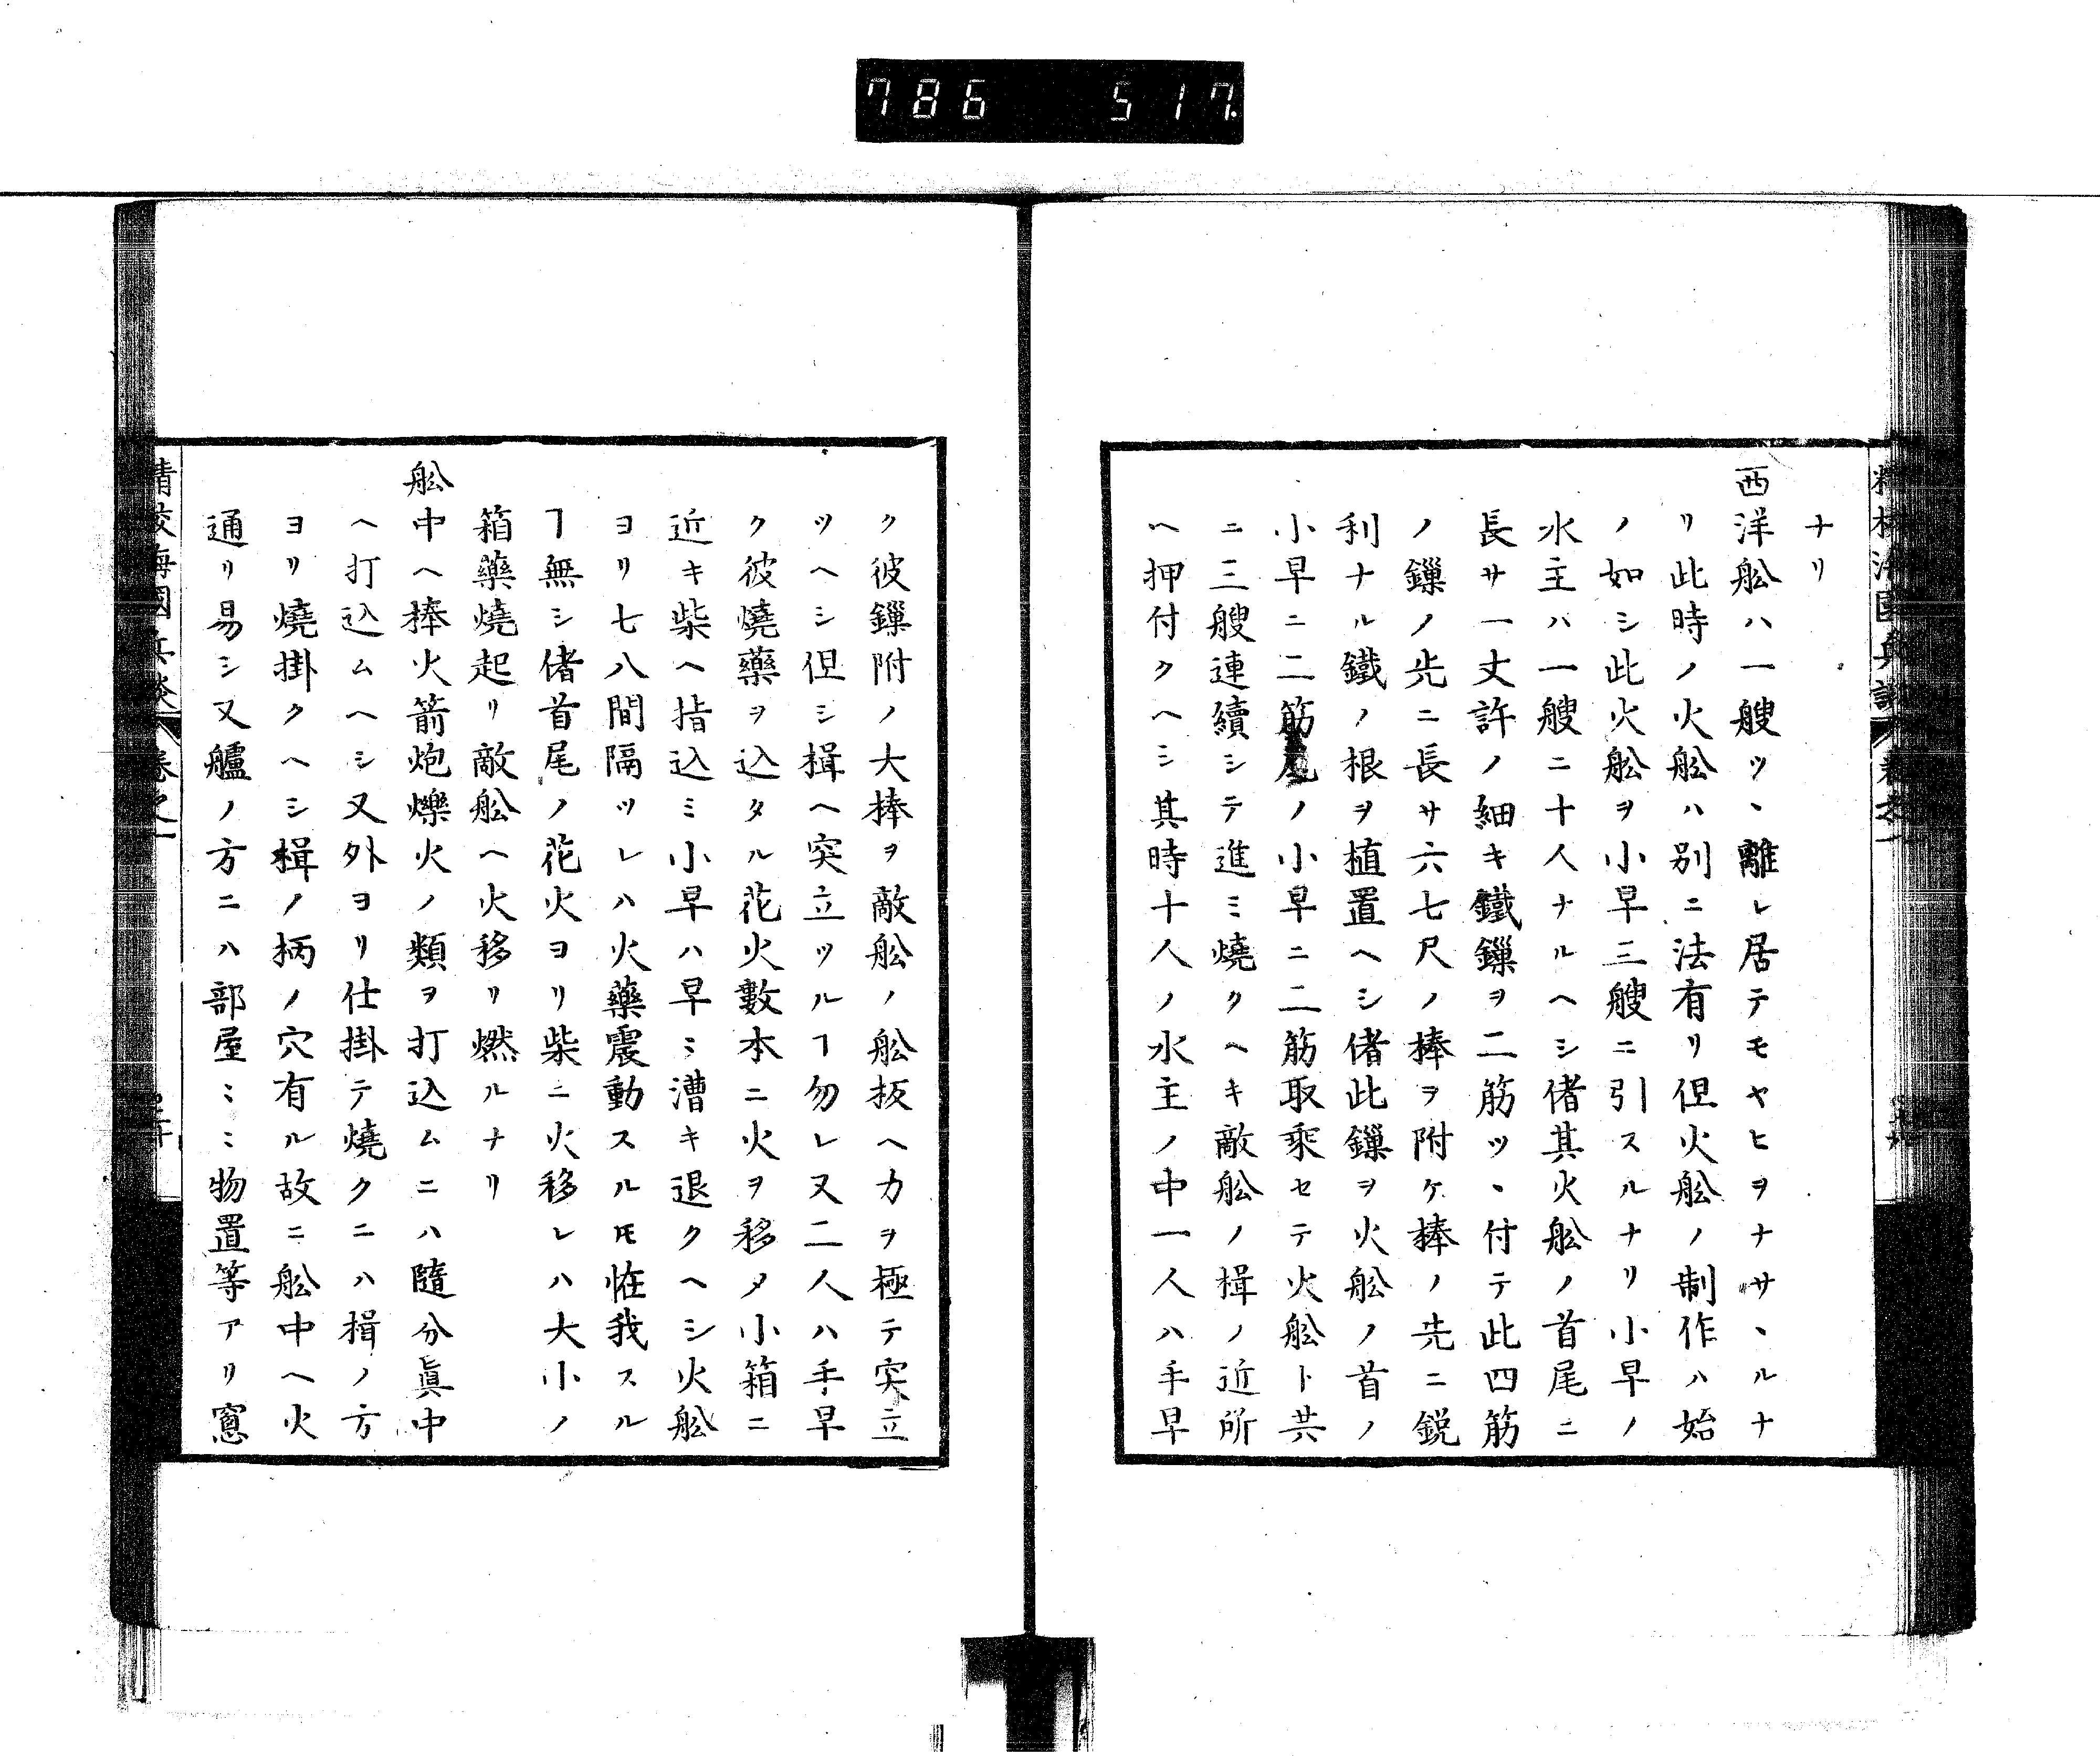 786 517
ナリ
西洋舩ハ一艘ツヽ離レ居テモヤヒヲナサヽルナ
リ此時ノ火舩ハ別ニ法有リ但火舩ノ制作ハ始
ノ如シ此火舩ヲ小早三艘ニ引スルナリ小早ノ
水主ハ一艘ニ十人ナルヘシ偖其火舩ノ首尾ニ
長サ一丈許ノ細キ鐵鏁ヲ二筋ツヽ付テ此四筋
ノ鏁ノ先ニ長サ六七尺ノ棒ヲ附ケ棒ノ先ニ鋭
利ナル鐵ノ根ヲ植置ヘシ偖此鏁ヲ火舩ノ首ノ
小早ニ二筋尾ノ小早ニ二筋取乘セテ火舩ト共
ニ三艘連續シテ進ミ燒クヘキ敵舩ノ楫ノ近所
ヘ押付クヘシ其時十人ノ水主ノ中一人ハ手早
ク彼鏁附ノ大棒ヲ敵舩ノ舩板ヘ力ヲ極テ突立
ツヘシ但シ楫ヘ突立ツルヿ勿レ又二人ハ手早
ク彼燒藥ヲ込タル花火數本ニ火ヲ移メ小箱ニ
近キ柴ヘ指込ミ小早ハ早ミ漕キ退クヘシ火舩
ヨリ七八間隔ツレハ火藥震動スルモ恠我スル
ヿ無シ偖首尾ノ花火ヨリ柴ニ火移レハ大小ノ
箱藥燒起リ敵舩ヘ火移リ燃ルナリ
舩中ヘ捧火箭炮爍火ノ類ヲ打込ムニハ隨分眞中
ヘ打込ムヘシ又外ヨリ仕掛テ燒クニハ楫ノ方
ヨリ燒掛クヘシ楫ノ柄ノ穴有ル故ニ舩中ヘ火
通リ易シ又艫ノ方ニハ部屋ミミ物置等アリ窻
精校海國兵談 卷之一